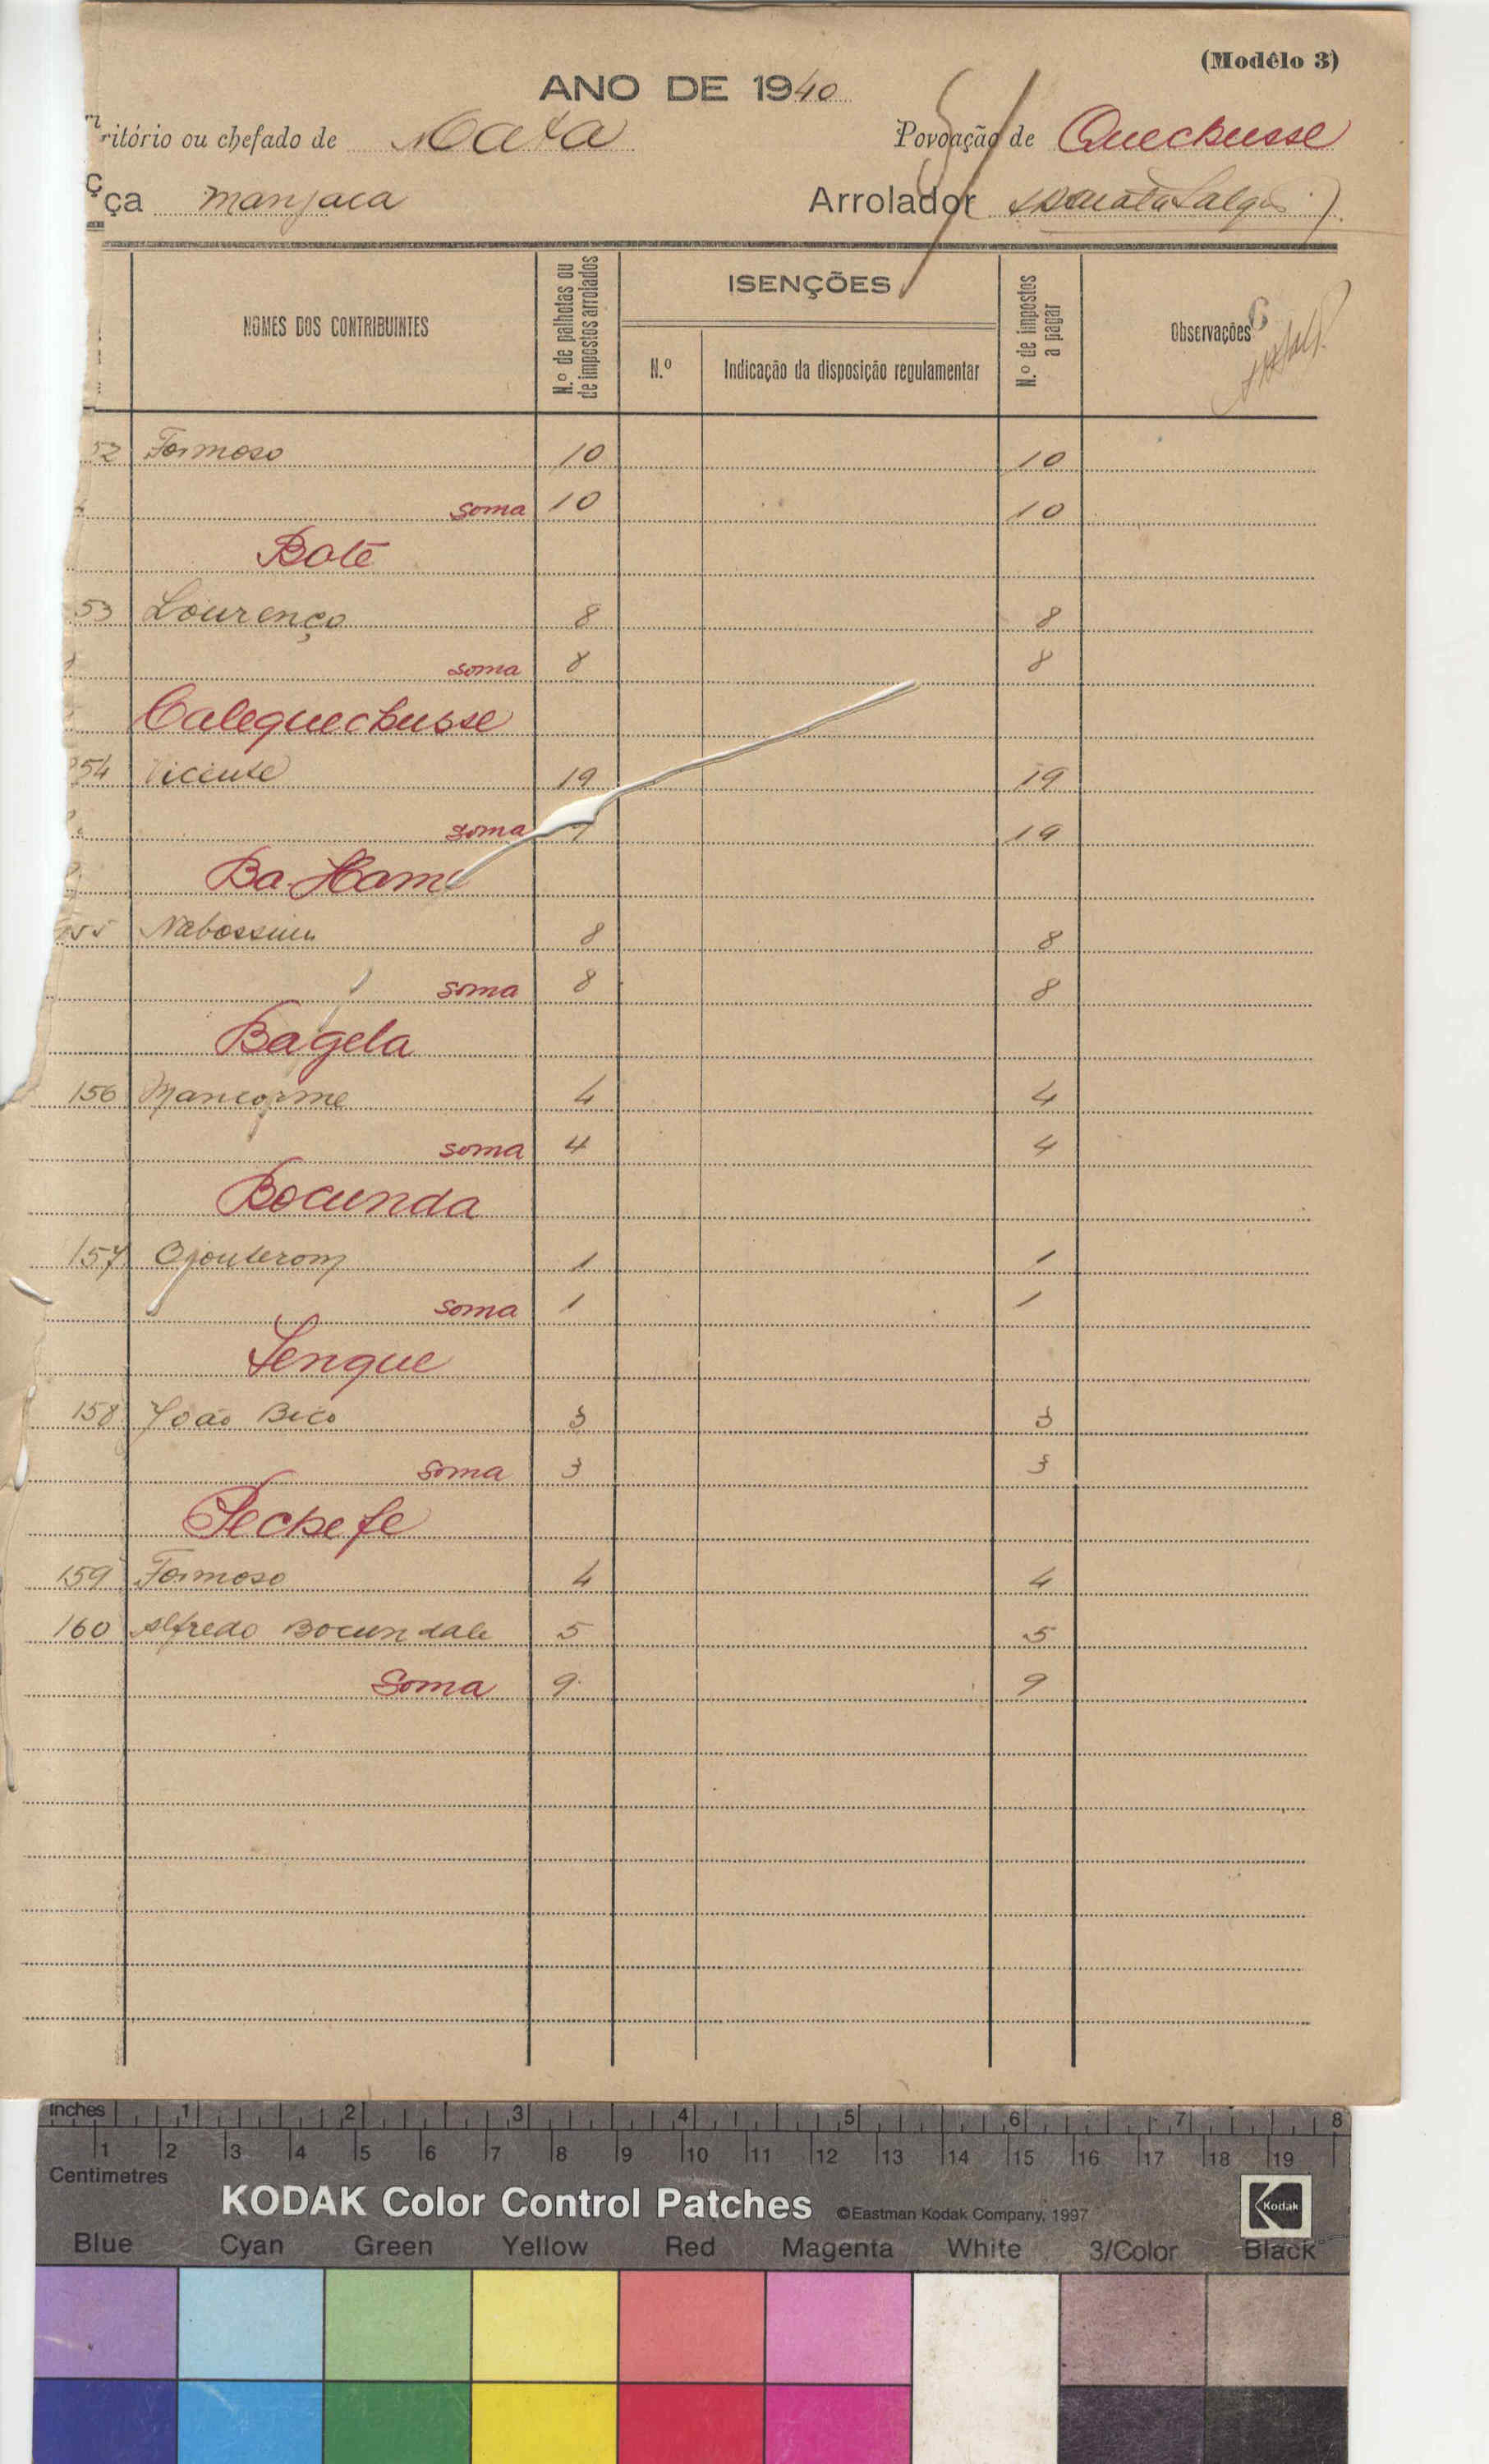 (Modêlo 3)
ANO DE 1940
ritório ou chefado de Cata Povoação de Quechusse
ça manjaca Arrolador
NOMES DOS CONTRIBUINTES N.º de palhotas ou de impostos arrolados ISENÇÕES N.º Indicação da disposição regulamentar N.º de impostos a pagar Observações
52 Formoso 10 10
soma 10 10
Botê
53 Lourenço 8 8
soma 8 8
Calequechusse
54 Vicente 19 19
soma 19
Ba-Ham
155 Nabossim 8 8
soma 8 8
Bagela
156 Mancorme 4 4
soma 4 4
Bocunda
157 1 1
soma 1 1
Tengue
158 João Bico 3 3
soma 3 3
Pechefe
159 Formoso 4 4
160 Alfredo Bocundale 5 5
Soma 9 9
inches 1 2 3 4 5 6 7 8
1 2 3 4 5 6 7 8 9 10 11 12 13 14 15 16 17 18 19
Centimetres
KODAK Color Control Patches ©Eastman Kodak Company, 1997 Kodak
Blue Cyan Green Yellow Red Magenta White 3/Color Black